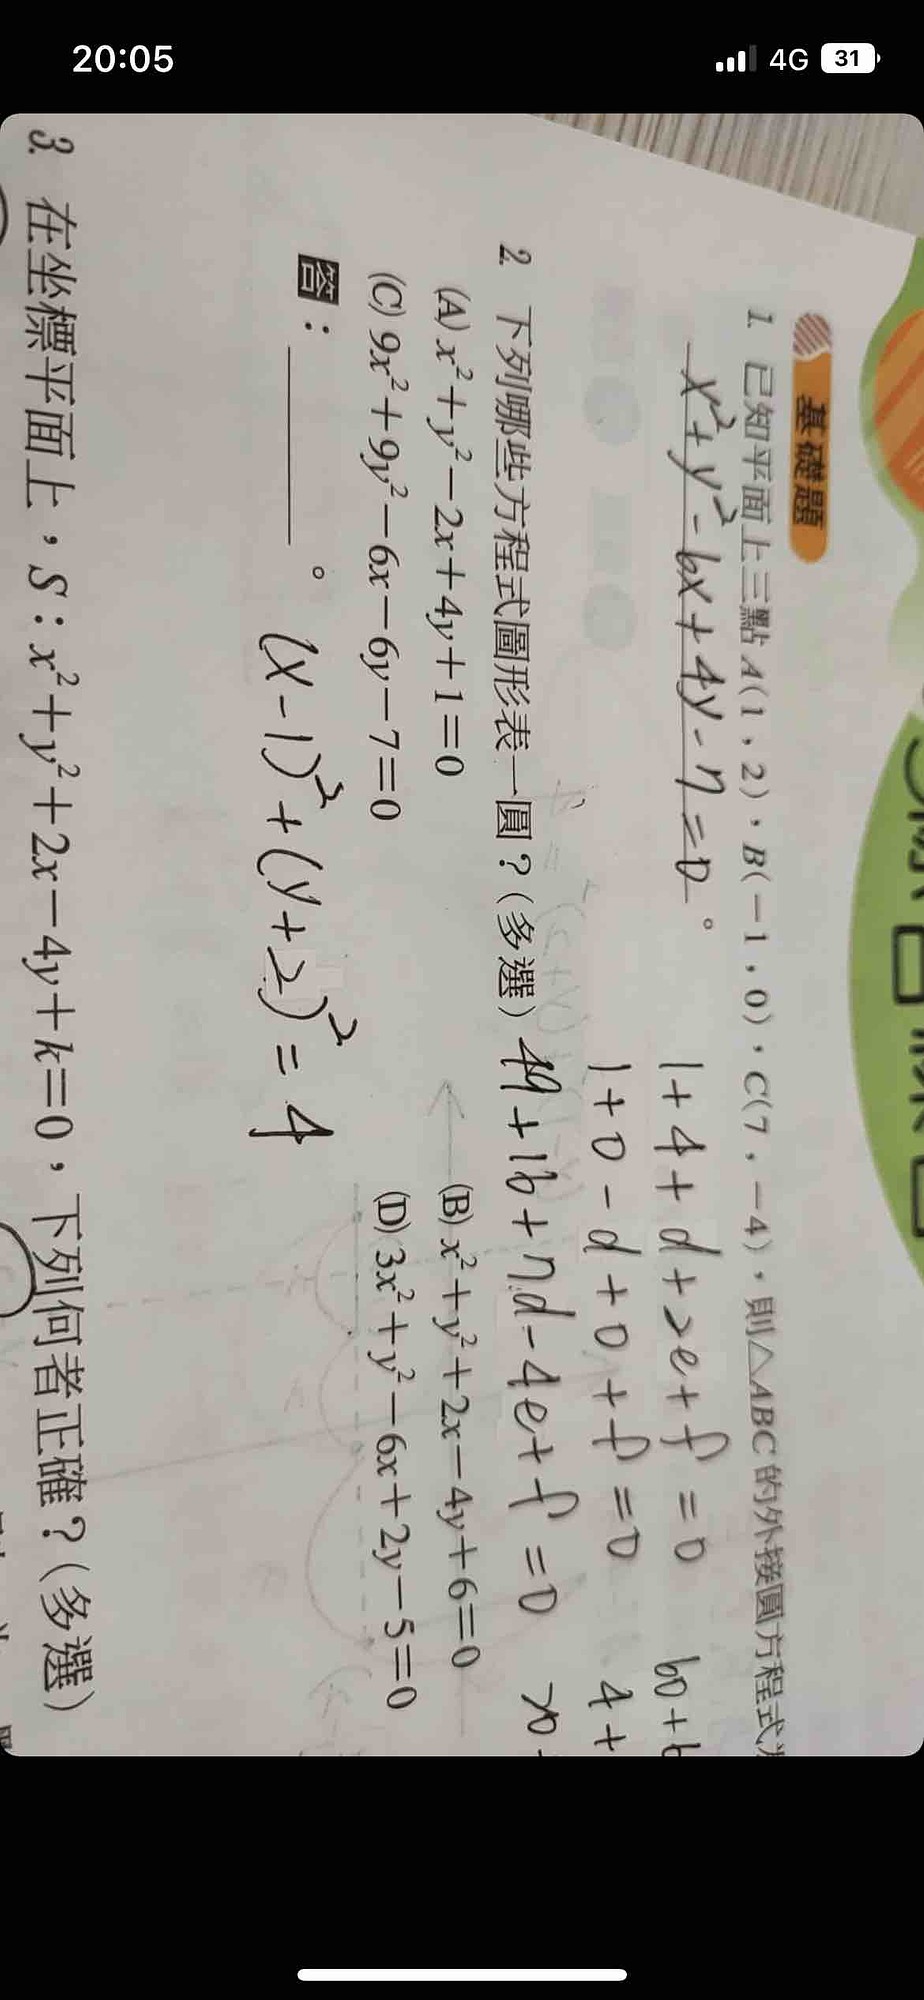 20:05
4G 31
基礎題
1. 已知平面上三點 A(1，2)、B(－1，0)，C(7，－4)，則△ABC 的外接圓方程式
x²+y²-6x+4y-7=0。
1+4+d+2e+f=0
1+0-d+0+f=0
4+
2. 下列哪些方程式圖形表一圓？(多選)
49+16+7d-4e+f=0
20-
(A) x²+y²－2x+4y+1=0
(B) x²+y²+2x－4y+6=0
(C) 9x²+9y²－6x－6y－7=0
(D) 3x²+y²－6x+2y－5=0
答：。
(x-1)²+(y+2)²=4
3. 在坐標平面上，S：x²+y²+2x－4y+k=0，下列何者正確？(多選)